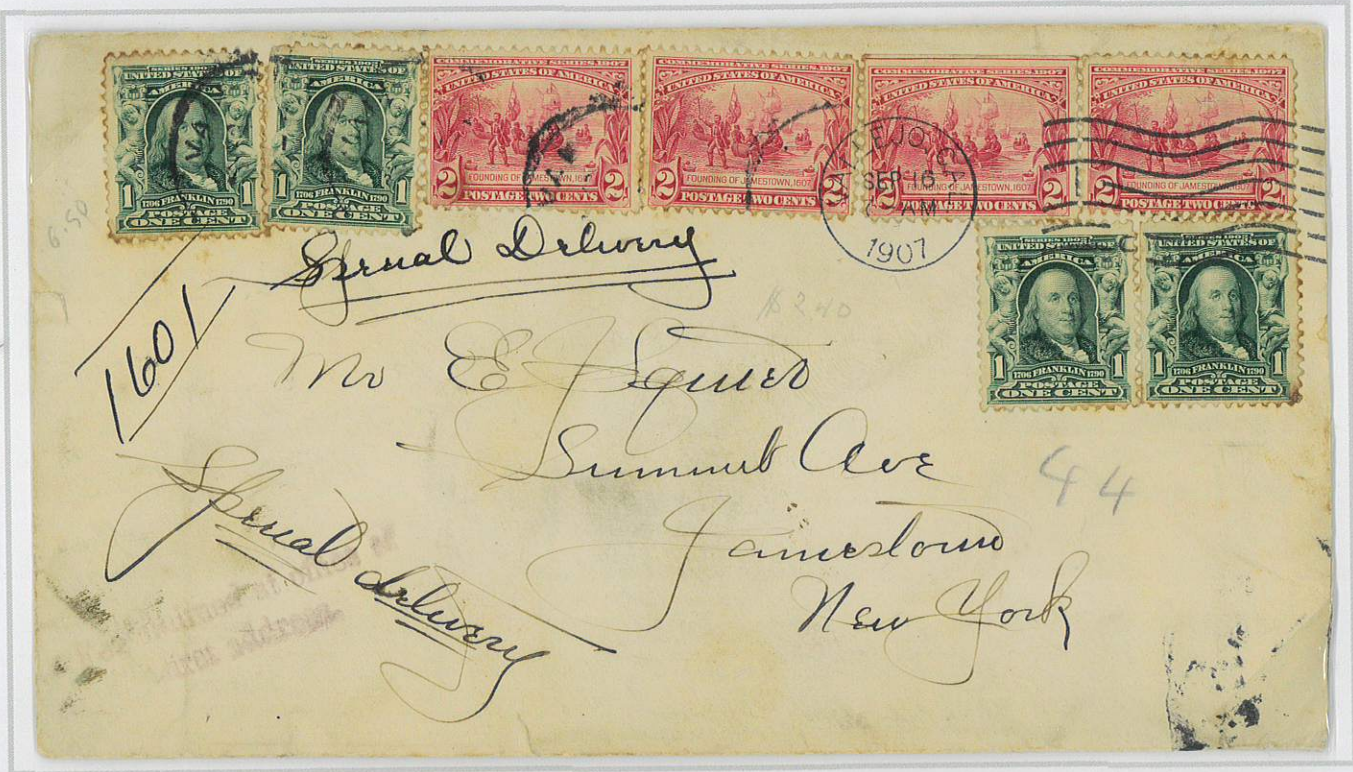 SERIES 1902
UNITED STATES OF
AMERICA
1 1706 FRANKLIN 1790 1
POSTAGE
ONE CENT
SERIES 1902
UNITED STATES OF
AMERICA
1 1706 FRANKLIN 1790 1
POSTAGE
ONE CENT
COMMEMORATIVE SERIES 1907
UNITED STATES OF AMERICA
FOUNDING OF JAMESTOWN, 1607
2 POSTAGE TWO CENTS 2
COMMEMORATIVE SERIES 1907
UNITED STATES OF AMERICA
FOUNDING OF JAMESTOWN, 1607
2 POSTAGE TWO CENTS 2
COMMEMORATIVE SERIES 1907
UNITED STATES OF AMERICA
FOUNDING OF JAMESTOWN, 1607
2 POSTAGE TWO CENTS 2
COMMEMORATIVE SERIES 1907
UNITED STATES OF AMERICA
FOUNDING OF JAMESTOWN, 1607
2 POSTAGE TWO CENTS 2
VALLEJO, CA
SEP 16
AM
1907
SERIES 1902
UNITED STATES OF
AMERICA
1 1706 FRANKLIN 1790 1
POSTAGE
ONE CENT
SERIES 1902
UNITED STATES OF
AMERICA
1 1706 FRANKLIN 1790 1
POSTAGE
ONE CENT
6.50
Special Delivery
1601
$2.40
Mr E J Squier
Summit Ave
44
Jamestown
New York
Special delivery